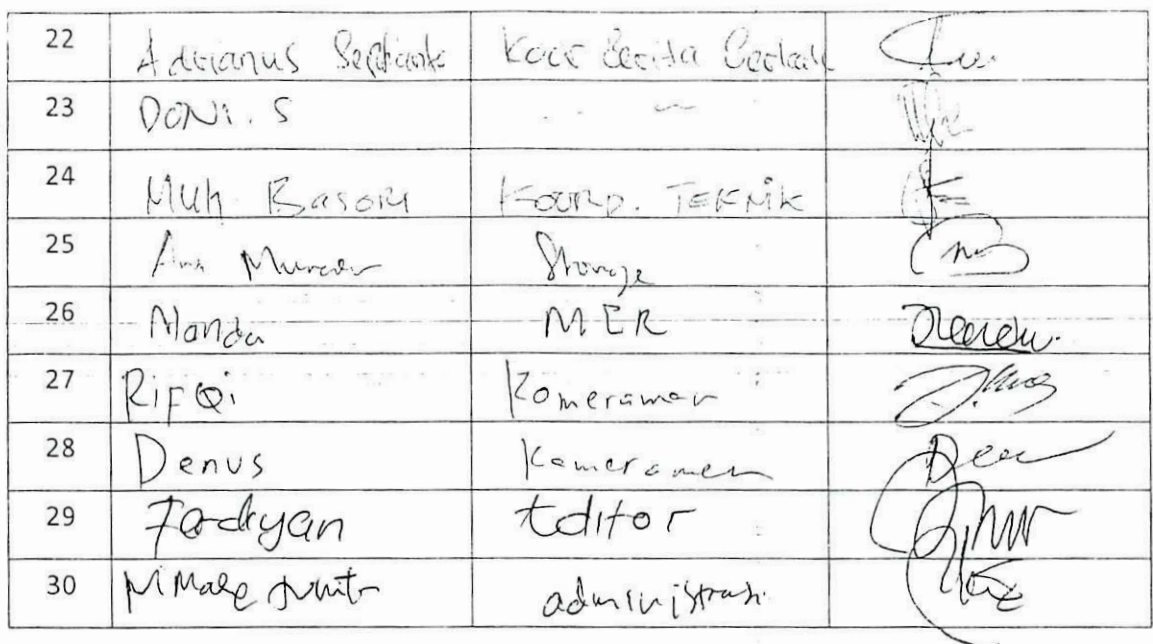 22 Adrianus Septianto Koor Berita Berkala
23 DONI. S
24 Muh. Basori Koord. TEKNIK
25 Storage
26 Nanda MER
27 RifQi Kameraman
28 Denus Kameramen
29 Fadryan Editor
30 administrasi